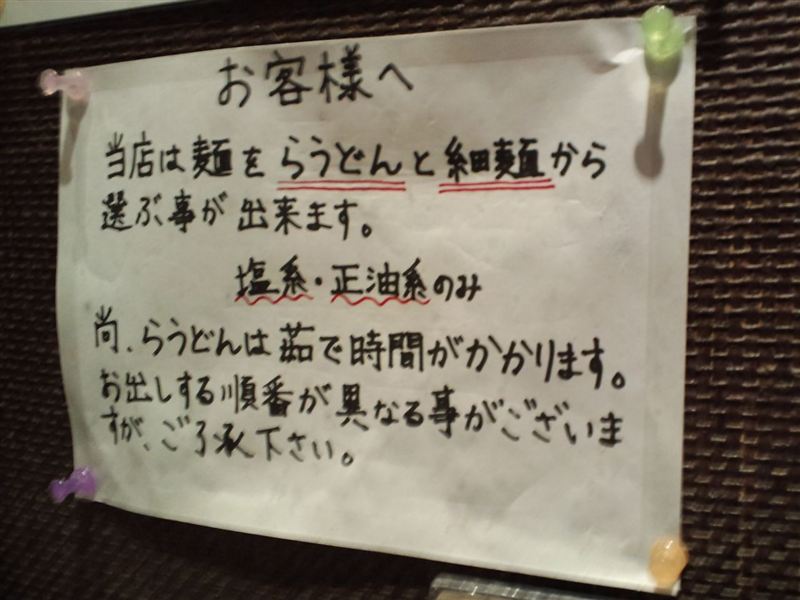 お客様へ
当店は麺をらうどんと細麺から
選ぶ事が出来ます。
塩系・正油系のみ
尚、らうどんは茹で時間がかかります。
お出しする順番が異なる事がございま
すが、ご了承下さい。